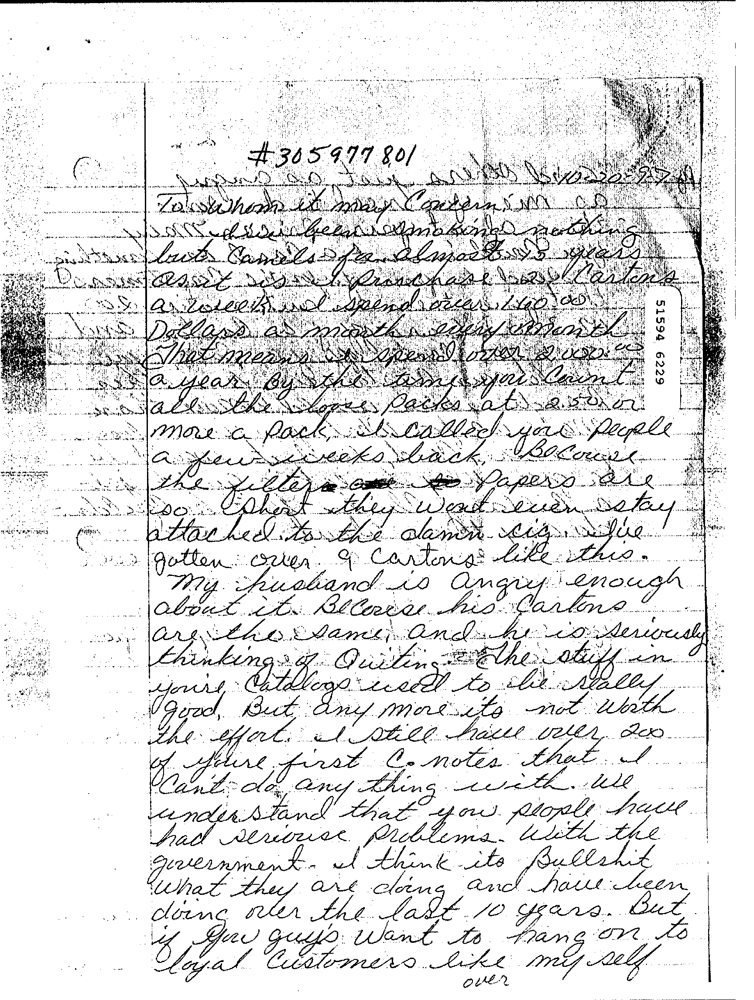 #305977801
10-20-97
To whom it may Concern:
I have been smoking nothing
but Camels for almost 15 years
as it is I Pruschase 2 Cartons
a week and spend over 140.00
Dollars a month every month
That means I spend over 2,000.00
a year By the time you Count
all the loose Packs at 2.50 or
more a Pack, I called you People
a few weeks back. Because
the filters Papers are
so short they wont even stay
attached to the damn cig. I've
gotten over 9 Cartons like this.
My husband is angry enough
about it. Becouse his Cartons
are the same, and he is seriously
thinking of Quiting. The stuff in
youre Catalogs used to be really
good, But any more its not worth
the effort. I still have over 200
of youre first C. notes that I
Can't do any thing with. We
understand that you people have
had seriouse Problems. With the
government. I think its Bullshit
what they are doing and have been
doing over the last 10 years. But
if you guy's want to hang on to
loyal Customers like my self
over
51594 6229